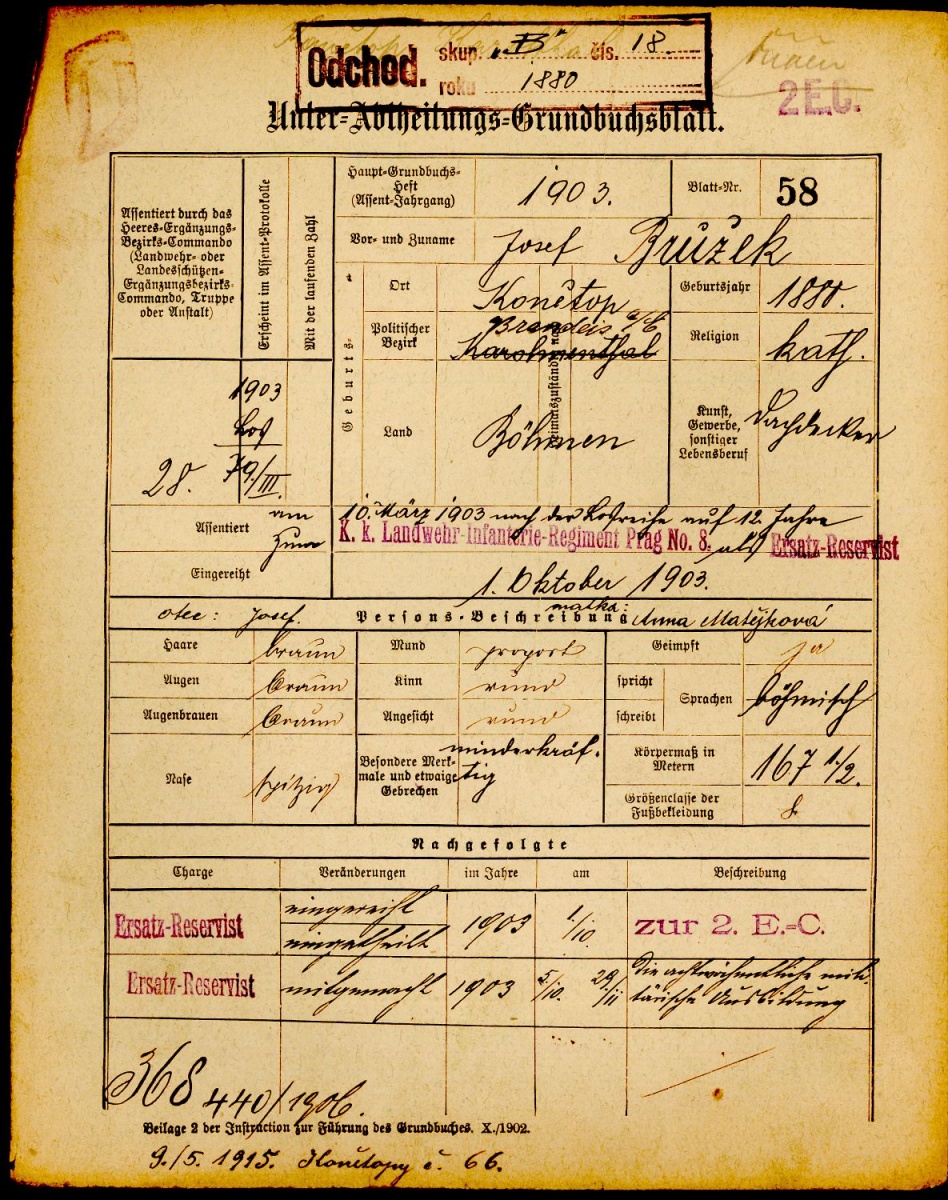 Odchod. skup. „B“ čís. 18.
roku 1880
2 E.C.
Unter-Abtheilungs-Grundbuchsblatt.
Assentiert durch das Heeres-Ergänzungs-Bezirks-Commando (Landwehr- oder Landesschützen-Ergänzungsbezirks-Commando, Truppe oder Anstalt)
Erscheint im Assent-Protokolle
Mit der laufenden Zahl
Haupt-Grundbuchs-Heft (Assent-Jahrgang) 1903. Blatt-Nr. 58
Vor- und Zuname Josef Bružek
Geburts-
Ort Konětop Geburtsjahr 1880.
Politischer Bezirk Brandeis a/E Karolinenthal Religion kath.
Heimatszuständig
Land Böhmen Kunst, Gewerbe, sonstiger Lebensberuf Dachdecker
1903
Los
28. 79/III.
Assentiert am 10. März 1903 nach der Losreihe auf 12 Jahre
zum K. k. Landwehr-Infanterie-Regiment Prag No. 8. als Ersatz-Reservist
Eingereiht 1. Oktober 1903.
otec: Josef. Persons-Beschreibung matka: Anna Matějková
Haare braun Mund proport Geimpft ja
Augen braun Kinn rund spricht schreibt Sprachen böhmisch
Augenbrauen braun Angesicht rund
Nase spitzig Besondere Merkmale und etwaige Gebrechen minderkräftig Körpermaß in Metern 167 1/2.
Größenclasse der Fußbekleidung 8.
Nachgefolgte
Charge Veränderungen im Jahre am Beschreibung
Ersatz-Reservist eingereiht eingetheilt 1903 1/10. zur 2. E.-C.
Ersatz-Reservist mitgemacht 1903 5/10. 29/11 die achtwöchentliche militärische Ausbildung
368 440/1906.
Beilage 2 der Instruction zur Führung des Grundbuches. X./1902.
9./5. 1915. Konětopy č. 66.